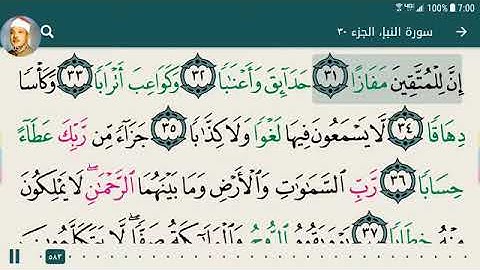 100% 7:00
سورة النبإ، الجزء ٣٠
إِنَّ لِلْمُتَّقِينَ مَفَازًا ٣١ حَدَآئِقَ وَأَعْنَٰبًا ٣٢ وَكَوَاعِبَ أَتْرَابًا ٣٣ وَكَأْسًا
دِهَاقًا ٣٤ لَّا يَسْمَعُونَ فِيهَا لَغْوًا وَلَا كِذَّٰبًا ٣٥ جَزَآءً مِّن رَّبِّكَ عَطَآءً
حِسَابًا ٣٦ رَّبِّ ٱلسَّمَٰوَٰتِ وَٱلْأَرْضِ وَمَا بَيْنَهُمَا ٱلرَّحْمَٰنِ ۖ لَا يَمْلِكُونَ
مِنْهُ خِطَابًا ٣٧ يَوْمَ يَقُومُ ٱلرُّوحُ وَٱلْمَلَٰٓئِكَةُ صَفًّا ۖ لَّا يَتَكَلَّمُونَ
٥٨٣